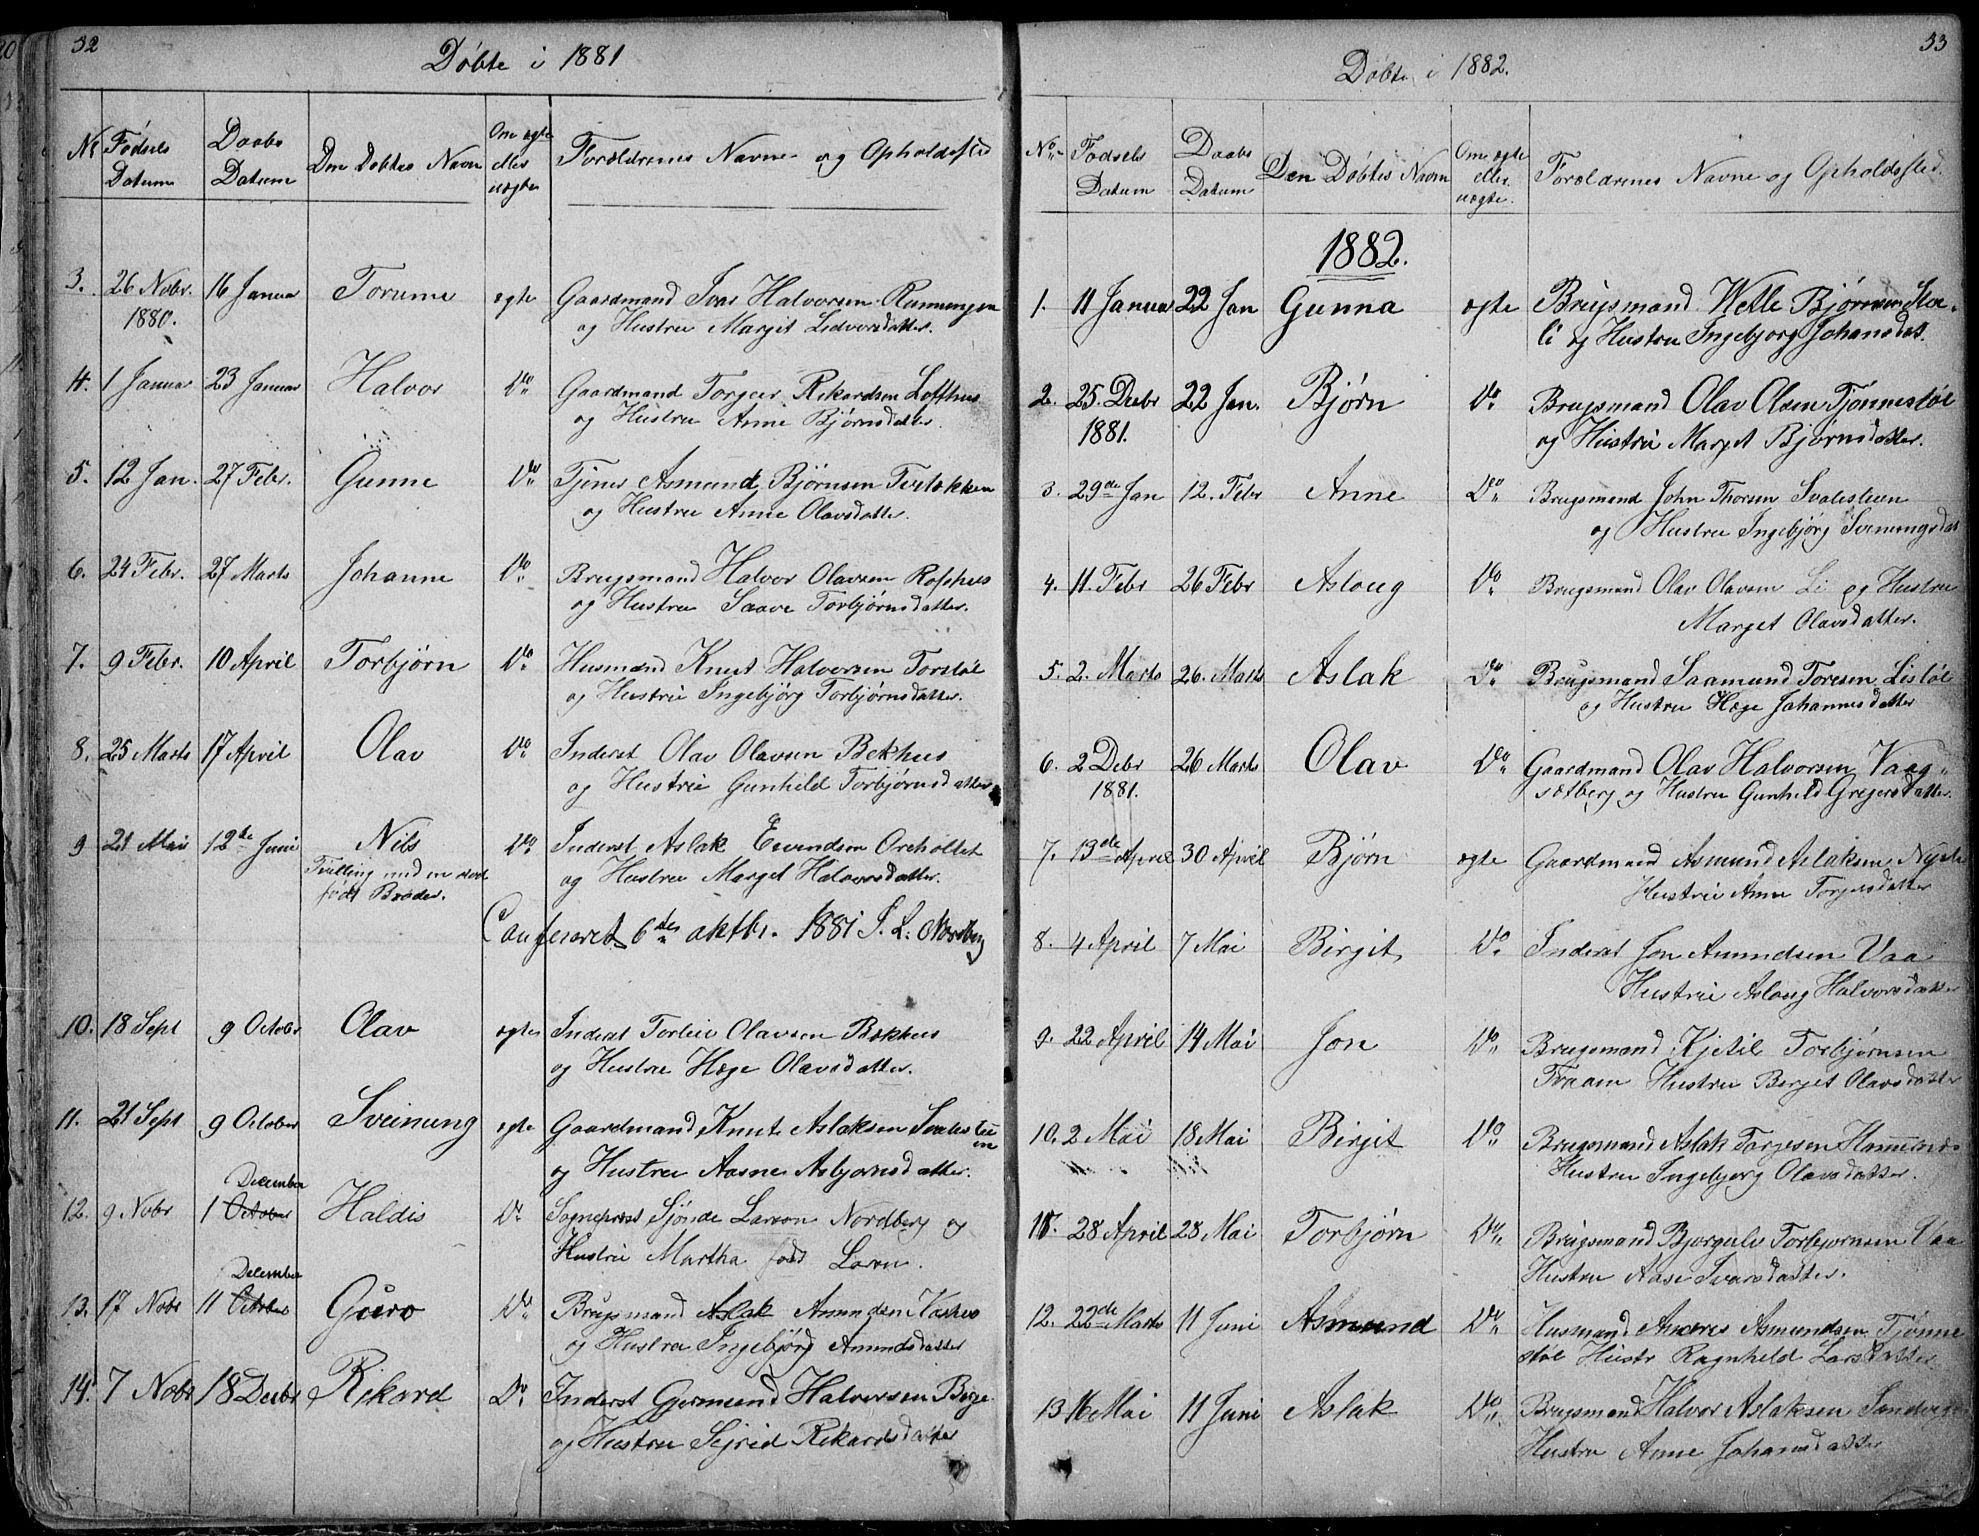 32
Döbte i 1881
No Fødsels Datum
Daabs Datum
Den Döbtes Navn
Om ægte eller uægte
Forældrenes Navne og Opholdssted
3. 26 Nobr. 16 Januar Torune ægte Gaardmand Ivar Halvorsen
1880. og Hustru Margit
4. 1 Januar 23 Januar Halvor Do Gaardmand Torgeir Rikardsen Lofthus
og Hustru Anne Bjørnsdatter.
5. 12 Jan. 27 Febr. Gunne Do Tjener Asmund Bjørnsen
og Hustru Anne Olavsdatter.
6. 24 Febr. 27 Marts Johanne Do Brugsmand Halvor Olavsen
og Hustru Saave Torbjørnsdatter.
7. 9 Febr. 10 April Torbjørn Do Husmand Knut Halvorsen Torstøl
og Hustru Ingebjörg Torbjørnsdatter.
8. 25 Marts 17 April Olav Do Inderst Olav Olavsen Bekhus
og Hustru Gunhild Torbjørnsdatter
9 21 Mai 12te Juni Nils Do Inderst Aslak Eivindsen
Tvilling med en död- og Hustru Marget Halvorsdatter.
födt Broder.
Confereret 6te oktbr. 1881 S. L. Nordberg
10. 18 Sept 9 Octobr Olav ægte Inderst Torleiv Olavsen Bekhus
og Hustru Hæge Olavsdatter.
11. 21 Sept 9 October Sveinung ægte Gaardmand Knut Aslaksen Svalestuen
og Hustru Aasne Asbjørnsdatter.
December
12. 9 Nobr 1 October Haldis Do Sogneprest Sjönde Larson Nordberg og
Hustru Martha født
December
13. 17 Nobr 11 October Guro Do Brugsmand Aslak Amundsen Vashus
og Hustru Ingebjörg Amundsdatter
14. 7 Nobr 18 Decbr Rikard Do Inderst Gjermund Halvorsen Berge
og Hustru Sejrid Rikardsdatter
33
Döbte i 1882.
No
Fødsels Datum
Daabs Datum
Den Döbtes Navn
Om ægte eller uægte.
Forældrenes Navne og Opholdssted.
1882.
1. 11 Januar 22 Jan Gunna ægte Brugsmand Wetle Bjørnsen
li og Hustru Ingebjorg Johansdat.
2. 25. Decbr 22 Jan. Bjørn Do Brugsmand Olav Olsen Tjönnestöl
1881. og Hustru Marget Bjørnsdatter.
3. 29de Jan 12. Febr Anne Do Brugsmand John Thorsen Svalestuen
og Hustru Ingebjørg Sveinungsdat
4. 11. Febr 26 Febr Asloug Do Brugsmand Olav Olavsen Li og Hustru
Marget Olavsdatter.
5. 2. Marts 26. Marts Aslak Do Brugsmand Saamund Toresen Listöl
og Hustru Hæge Johannesdatter
6. 2 Debr 26 Marts Olav Do Gaardmand Olav Halvorsen Vaag-
1881. sætberg og Hustru Gunhild Gregersdatter.
7. 13de April 30 April Bjørn ægte Gaardmand Asmund Aslaksen
Hustru Anne Torjersdatter
8. 4 April 7 Mai Birgit Do Inderst Jon Amundsen Vaa
Hustru Aslaug Halvorsdatter
9. 22 April 14 Mai Jon Do Brugsmand Kjetil Torbjørnsen
Fraam Hustru Berget Olavsdatter
10. 2 Mai 18 Mai Birgit Do Brugsmand Aslak Torjesen
Hustru Ingebjorg Olavsdatter.
11. 28 April 28 Mai Torbjørn Do Brugsmand Bjorgulv Torbjornsen Vaa
Hustru Aase Ivarsdatter.
12. 22de Marts 11 Juni Asmund Do Husmand Anders Asmundsen Tjønne
støl Hustr Ragnhild Larsdatter
13 16 Mai 11 Juni Aslak Do Brugsmand Halvor Aslaksen
Hustru Anne Johansdatter